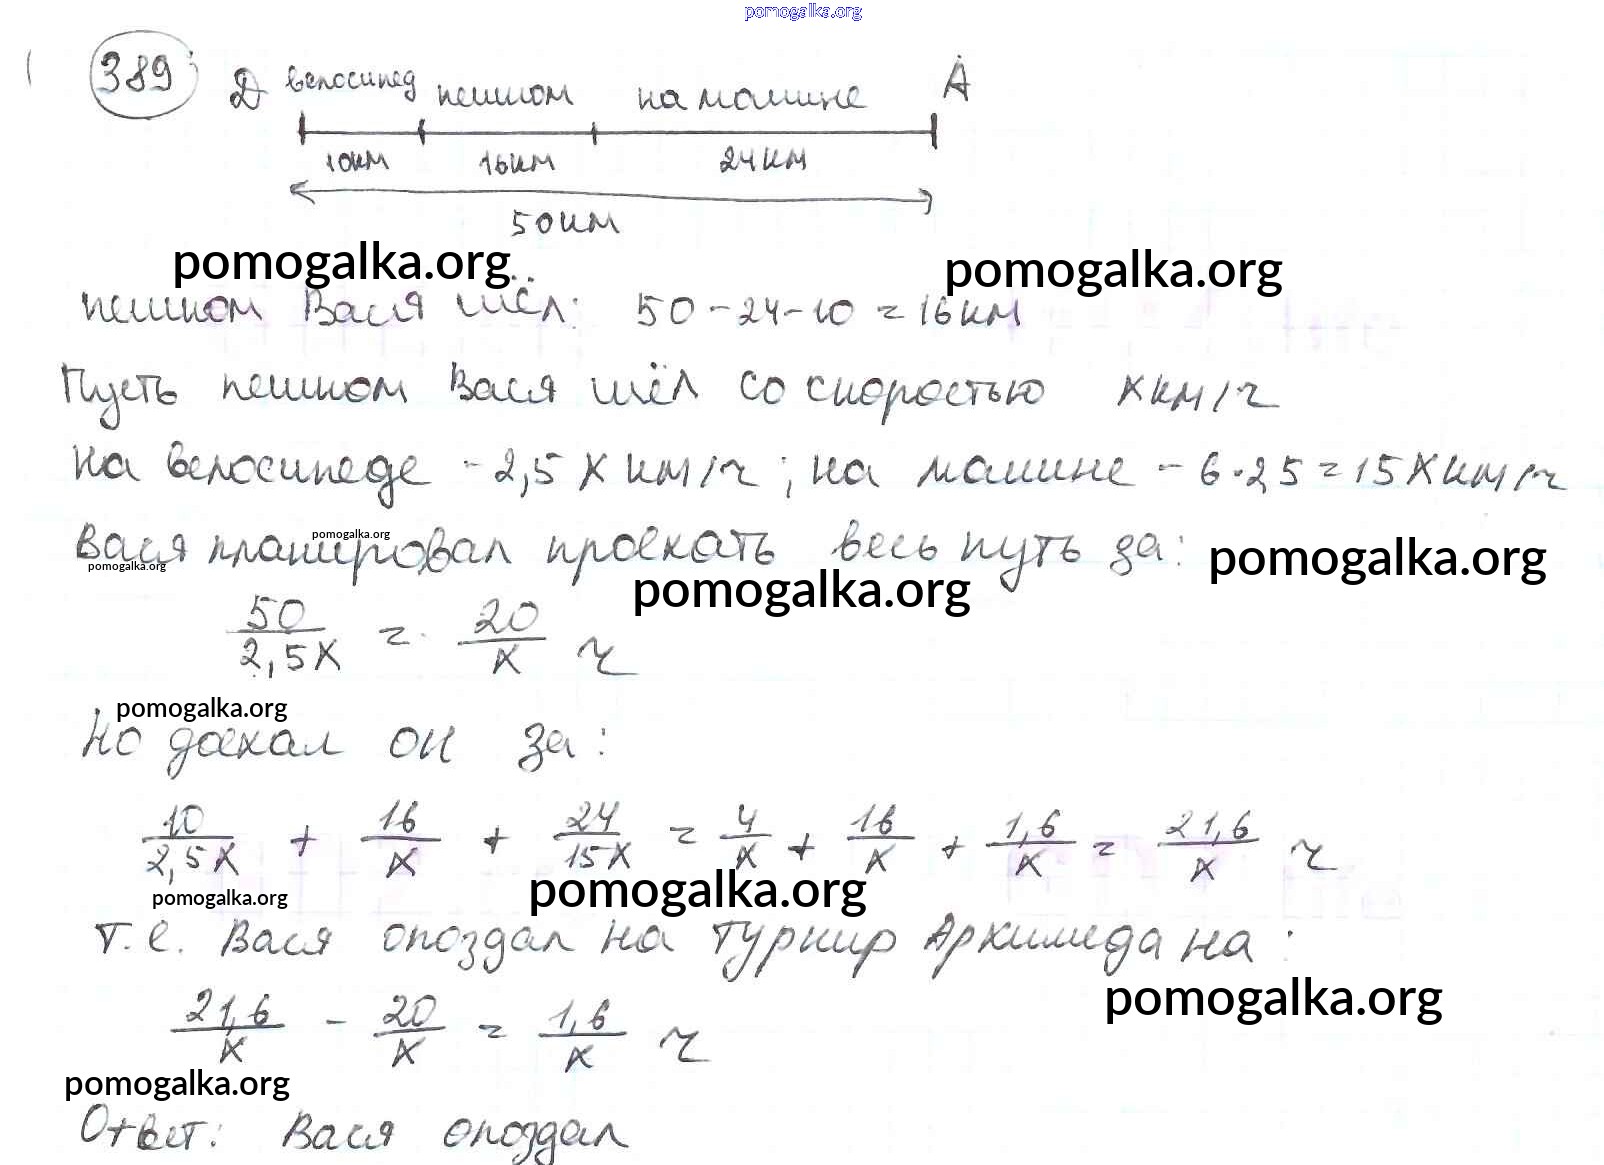 pomogalka.org
389
Д велосипед пешком на машине А
10км 16км 24км
50км
pomogalka.org pomogalka.org
пешком Вася шёл: 50-24-10=16км
Пусть пешком Вася шёл со скоростью x км/ч
На велосипеде - 2,5x км/ч; на машине - 6·2,5=15x км/ч
Вася планировал проехать весь путь за:
pomogalka.org
pomogalka.org
pomogalka.org
pomogalka.org
50/2,5x = 20/x ч
pomogalka.org
Но доехал он за:
10/2,5x + 16/x + 24/15x = 4/x + 16/x + 1,6/x = 21,6/x ч
pomogalka.org
pomogalka.org
т.е. Вася опоздал на турнир Архимеда на:
pomogalka.org
21,6/x - 20/x = 1,6/x ч
pomogalka.org
Ответ: Вася опоздал